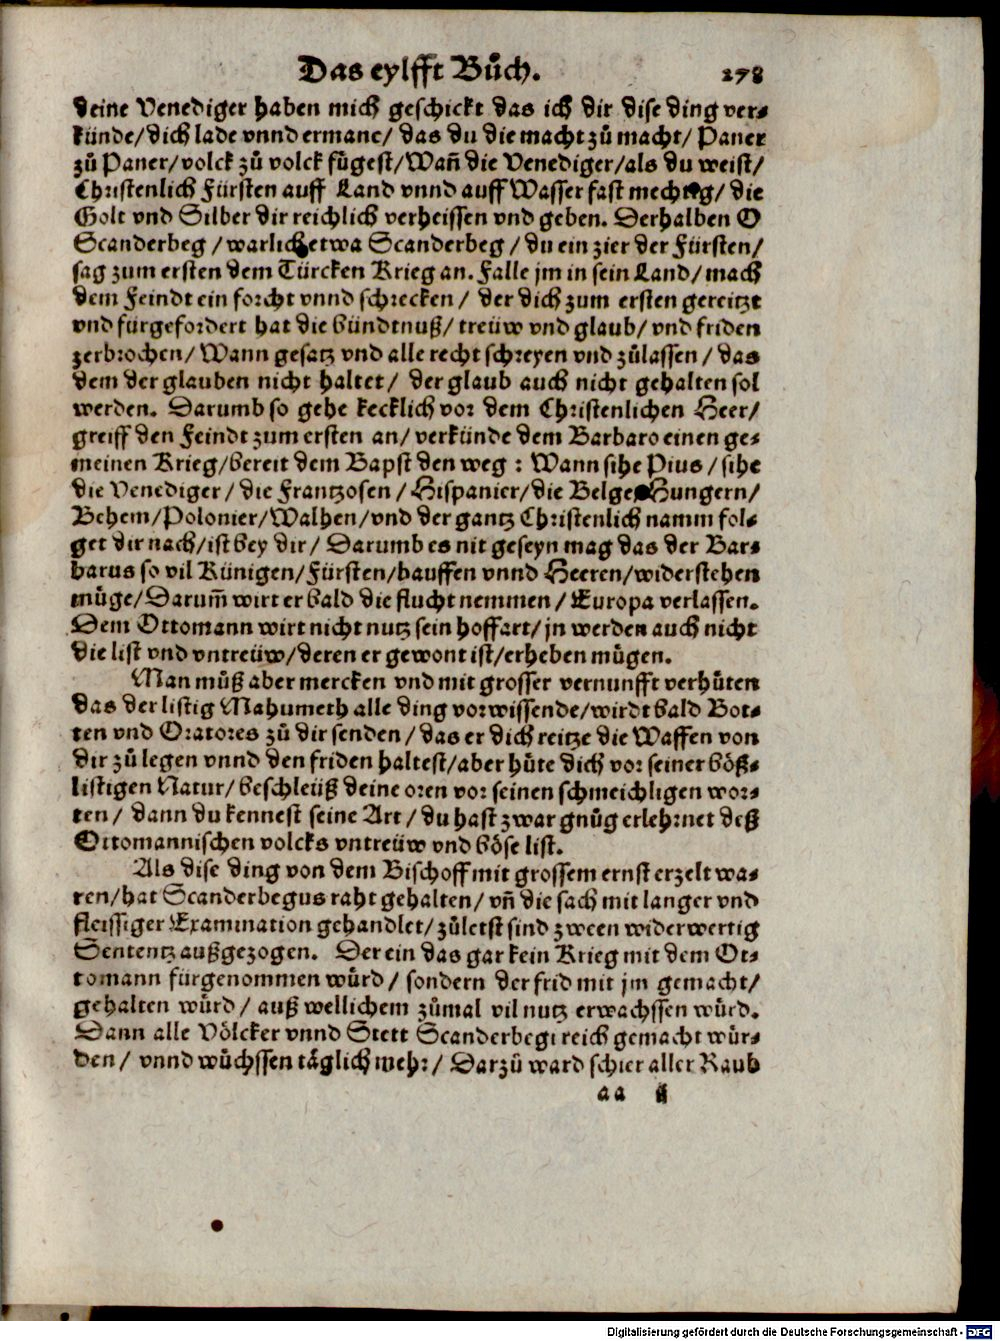 Das eylfft Bůch. 278
deine Venediger haben mich geschickt das ich dir dise ding ver-
künde/dich lade vnnd ermane/ das du die macht zů macht/ Paner
zů Paner/volck zů volck fůgest/Wañ die Venediger/als du weist/
Christenlich Fürsten auff Land vnnd auff Wasser fast mechtig/ die
Golt vnd Silber dir reichlich verheissen vnd geben. Derhalben O
Scanderbeg /warlich etwa Scanderbeg / du ein zier der Fürsten/
sag zum ersten dem Türcken Krieg an. Falle jm in sein Land/ mach
dem Feindt ein forcht vnnd schrecken / der dich zum ersten gereitzt
vnd fürgefordert hat die bündtnuß/ treüw vnd glaub/ vnd friden
zerbrochen/ Wann gesatz vnd alle recht schreyen vnd zůlassen / das
dem der glauben nicht haltet/ der glaub auch nicht gehalten sol
werden. Darumb so gehe kecklich vor dem Christenlichen Heer/
greiff den Feindt zum ersten an/ verkünde dem Barbaro einen ge-
meinen Krieg/bereit dem Bapst den weg : Wann sihe Pius / sihe
die Venediger / die Frantzosen / Hispanier/die Belge Hungern/
Behem/Polonier/Walhen/vnd der gantz Christenlich namm fol-
get dir nach/ist bey dir/ Darumb es nit geseyn mag das der Bar-
barus so vil Künigen/Fürsten/hauffen vnnd Heeren/widerstehen
müge/Darum̃ wirt er bald die flucht nemmen / Europa verlassen.
Dem Ottomann wirt nicht nutz sein hoffart/jn werden auch nicht
die list vnd vntreüw/deren er gewont ist/erheben mügen.
Man můß aber mercken vnd mit grosser vernunfft verhüten
das der listig Mahumeth alle ding vorwissende/wirdt bald Bot-
ten vnd Oratores zů dir senden / das er dich reitze die Waffen von
dir zů legen vnnd den friden haltest/aber hüte dich vor seiner böß-
listigen Natur/beschleüß deine oren vor seinen schmeichligen wor-
ten/ dann du kennest seine Art / du hast zwar gnůg erlehrnet deß
Ottomannischen volcks vntreüw vnd böse list.
Als dise ding von dem Bischoff mit grossem ernst erzelt wa-
ren/hat Scanderbegus raht gehalten/ vñ die sach mit langer vnd
fleissiger Examination gehandlet/ zůletst sind zween widerwertig
Sententz außgezogen. Der ein das gar kein Krieg mit dem Ot-
tomann fürgenommen würd / sondern der frid mit jm gemacht/
gehalten würd/ auß wellichem zůmal vil nutz erwachssen würd.
Dann alle Völcker vnnd Stett Scanderbegi reich gemacht wür-
den/ vnnd wůchssen täglich mehr/ Darzů ward schier aller Raub
aa ij
Digitalisierung gefördert durch die Deutsche Forschungsgemeinschaft - DFG